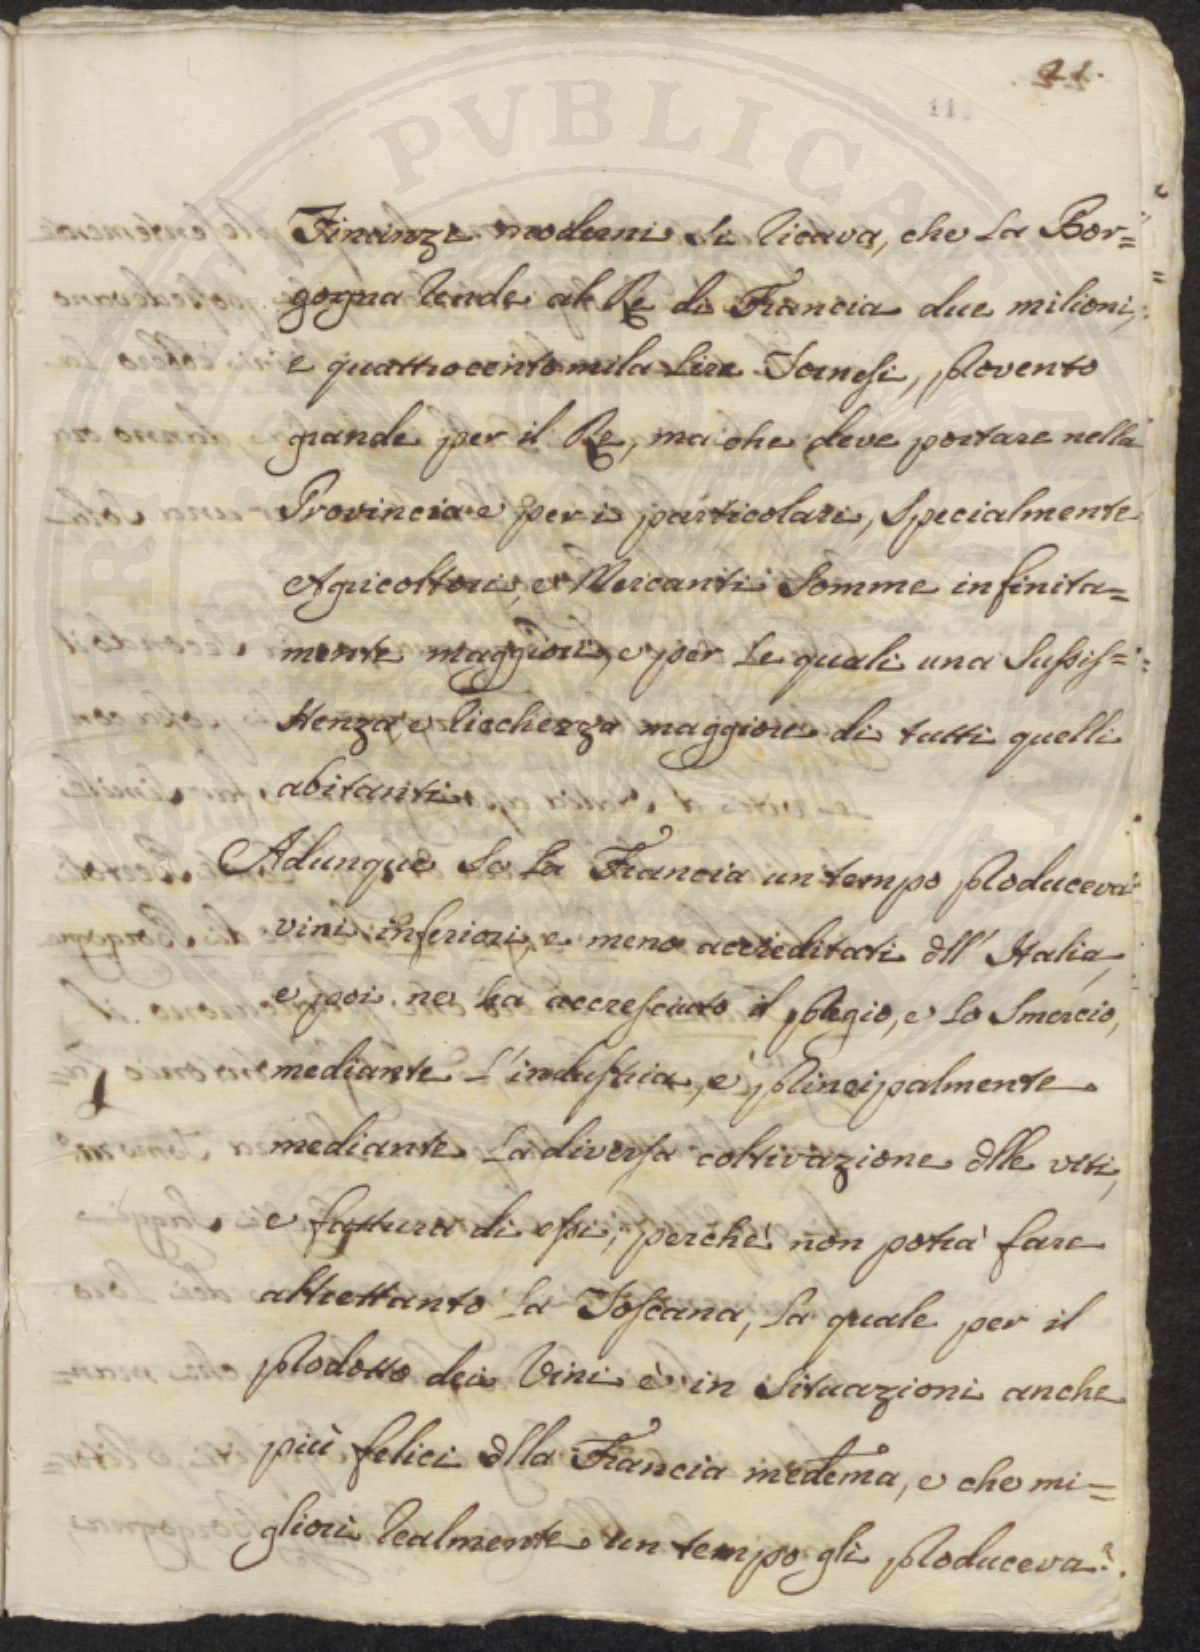 21.
11
Finanze moderni si ricava, che la Bor=
gogna rende al Re di Francia due milioni,
e quattrocento mila lire Tornesi, provento
grande per il Re, ma che deve portare nella
Provincia e per i particolari, specialmente
Agricoltori, e Mercanti somme infinita=
mente maggiori, e per le quali una sussis=
stenza e ricchezza maggiore di tutti quelli
abitanti.
Adunque se la Francia un tempo produceva
vini inferiori, e meno accreditati dll' Italia,
e poi ne ha accresciuto il pregio, e lo smercio,
mediante l'industria, e principalmente
mediante la diversa coltivazione dlle viti,
e fattura di essi, perchè non potrà fare
altrettanto la Toscana, la quale per il
prodotto dei Vini è in situazioni anche
più felici dlla Francia medema, e che mi=
gliori realmente un tempo gli produceva?
PVBLICAE